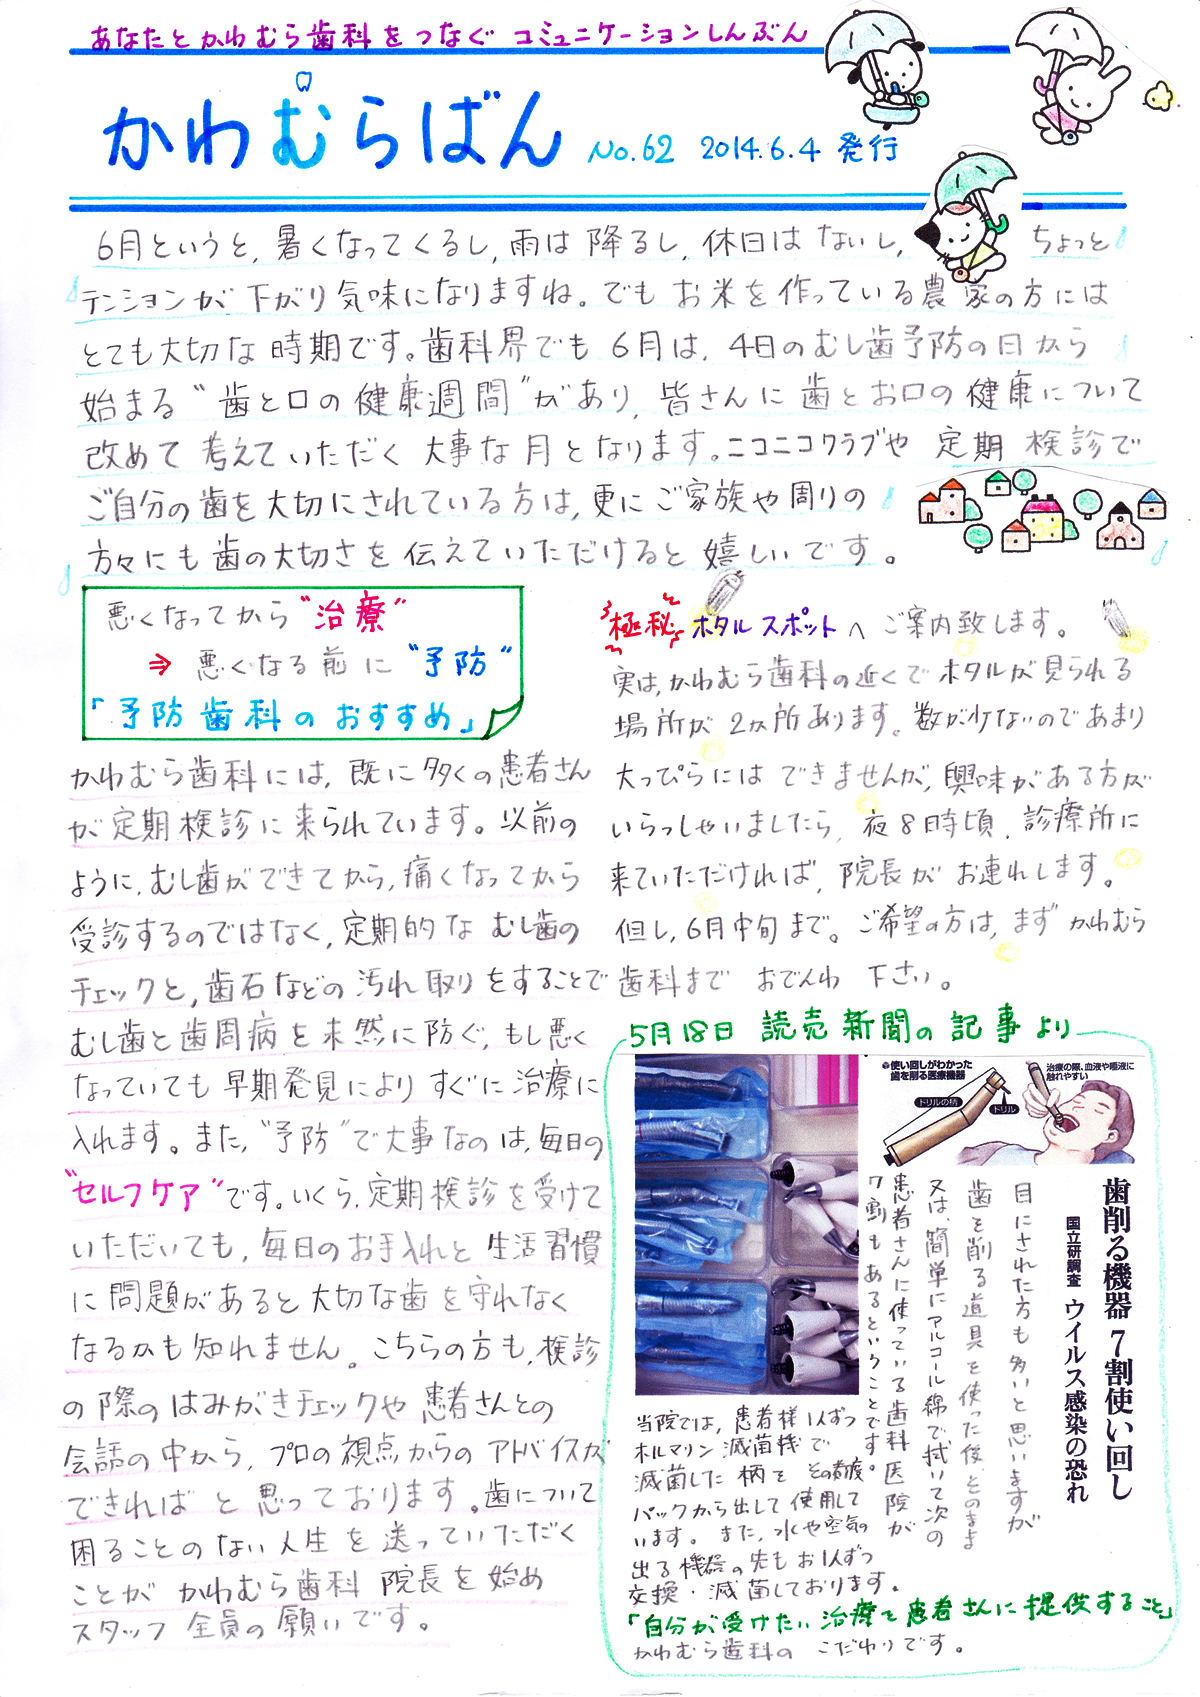 あなたとかわむら歯科をつなぐ コミュニケーションしんぶん
かわむらばん No.62 2014.6.4 発行
6月というと、暑くなってくるし、雨は降るし、休日はないし、ちょっと
テンションが下がり気味になりますね。でもお米を作っている農家の方には
とても大切な時期です。歯科界でも6月は、4日のむし歯予防の日から
始まる"歯と口の健康週間"があり、皆さんに歯とお口の健康について
改めて考えていただく大事な月となります。ニコニコクラブや定期検診で
ご自分の歯を大切にされている方は、更にご家族や周りの
方々にも歯の大切さを伝えていただけると嬉しいです。
悪くなってから"治療"
⇒ 悪くなる前に"予防"
「予防歯科のおすすめ」
かわむら歯科には、既に多くの患者さん
が定期検診に来られています。以前の
ように、むし歯ができてから、痛くなってから
受診するのではなく、定期的なむし歯の
チェックと、歯石などの汚れ取りをすることで
むし歯と歯周病を未然に防ぐ、もし悪く
なっていても早期発見によりすぐに治療に
入れます。また、"予防"で大事なのは、毎日の
"セルフケア"です。いくら、定期検診を受けて
いただいても、毎日のお手入れと生活習慣
に問題があると大切な歯を守れなく
なるかも知れません。こちらの方も、検診
の際のはみがきチェックや患者さんとの
会話の中から、プロの視点からのアドバイスが
できればと思っております。歯について
困ることのない人生を送っていただく
ことがかわむら歯科院長を始め
スタッフ全員の願いです。
極秘 ホタルスポットへご案内致します。
実は、かわむら歯科の近くでホタルが見られる
場所が2ヵ所あります。数が少ないのであまり
大っぴらにはできませんが、興味がある方が
いらっしゃいましたら、夜8時頃、診療所に
来ていただければ、院長がお連れします。
但し、6月中旬まで。ご希望の方は、まずかわむら
歯科までおでんわ下さい。
5月18日 読売新聞の記事より
●使い回しがわかった
歯を削る医療機器
ドリルの柄
ドリル
治療の際、血液や唾液に
触れやすい
歯削る機器 7割使い回し
国立研調査 ウイルス感染の恐れ
目にされた方も多いと思いますが
歯を削る道具を使った後、そのまま
又は、簡単にアルコール綿で拭いて次の
患者さんに使っている歯科医院が
7割もあるということです。
当院では、患者様1人ずつ
ホルマリン滅菌機で
滅菌した柄をその都度
パックから出して使用して
います。また、水や空気の
出る機器の先もお1人ずつ
交換・滅菌しております。
「自分が受けたい治療を患者さんに提供すること」
かわむら歯科のこだわりです。